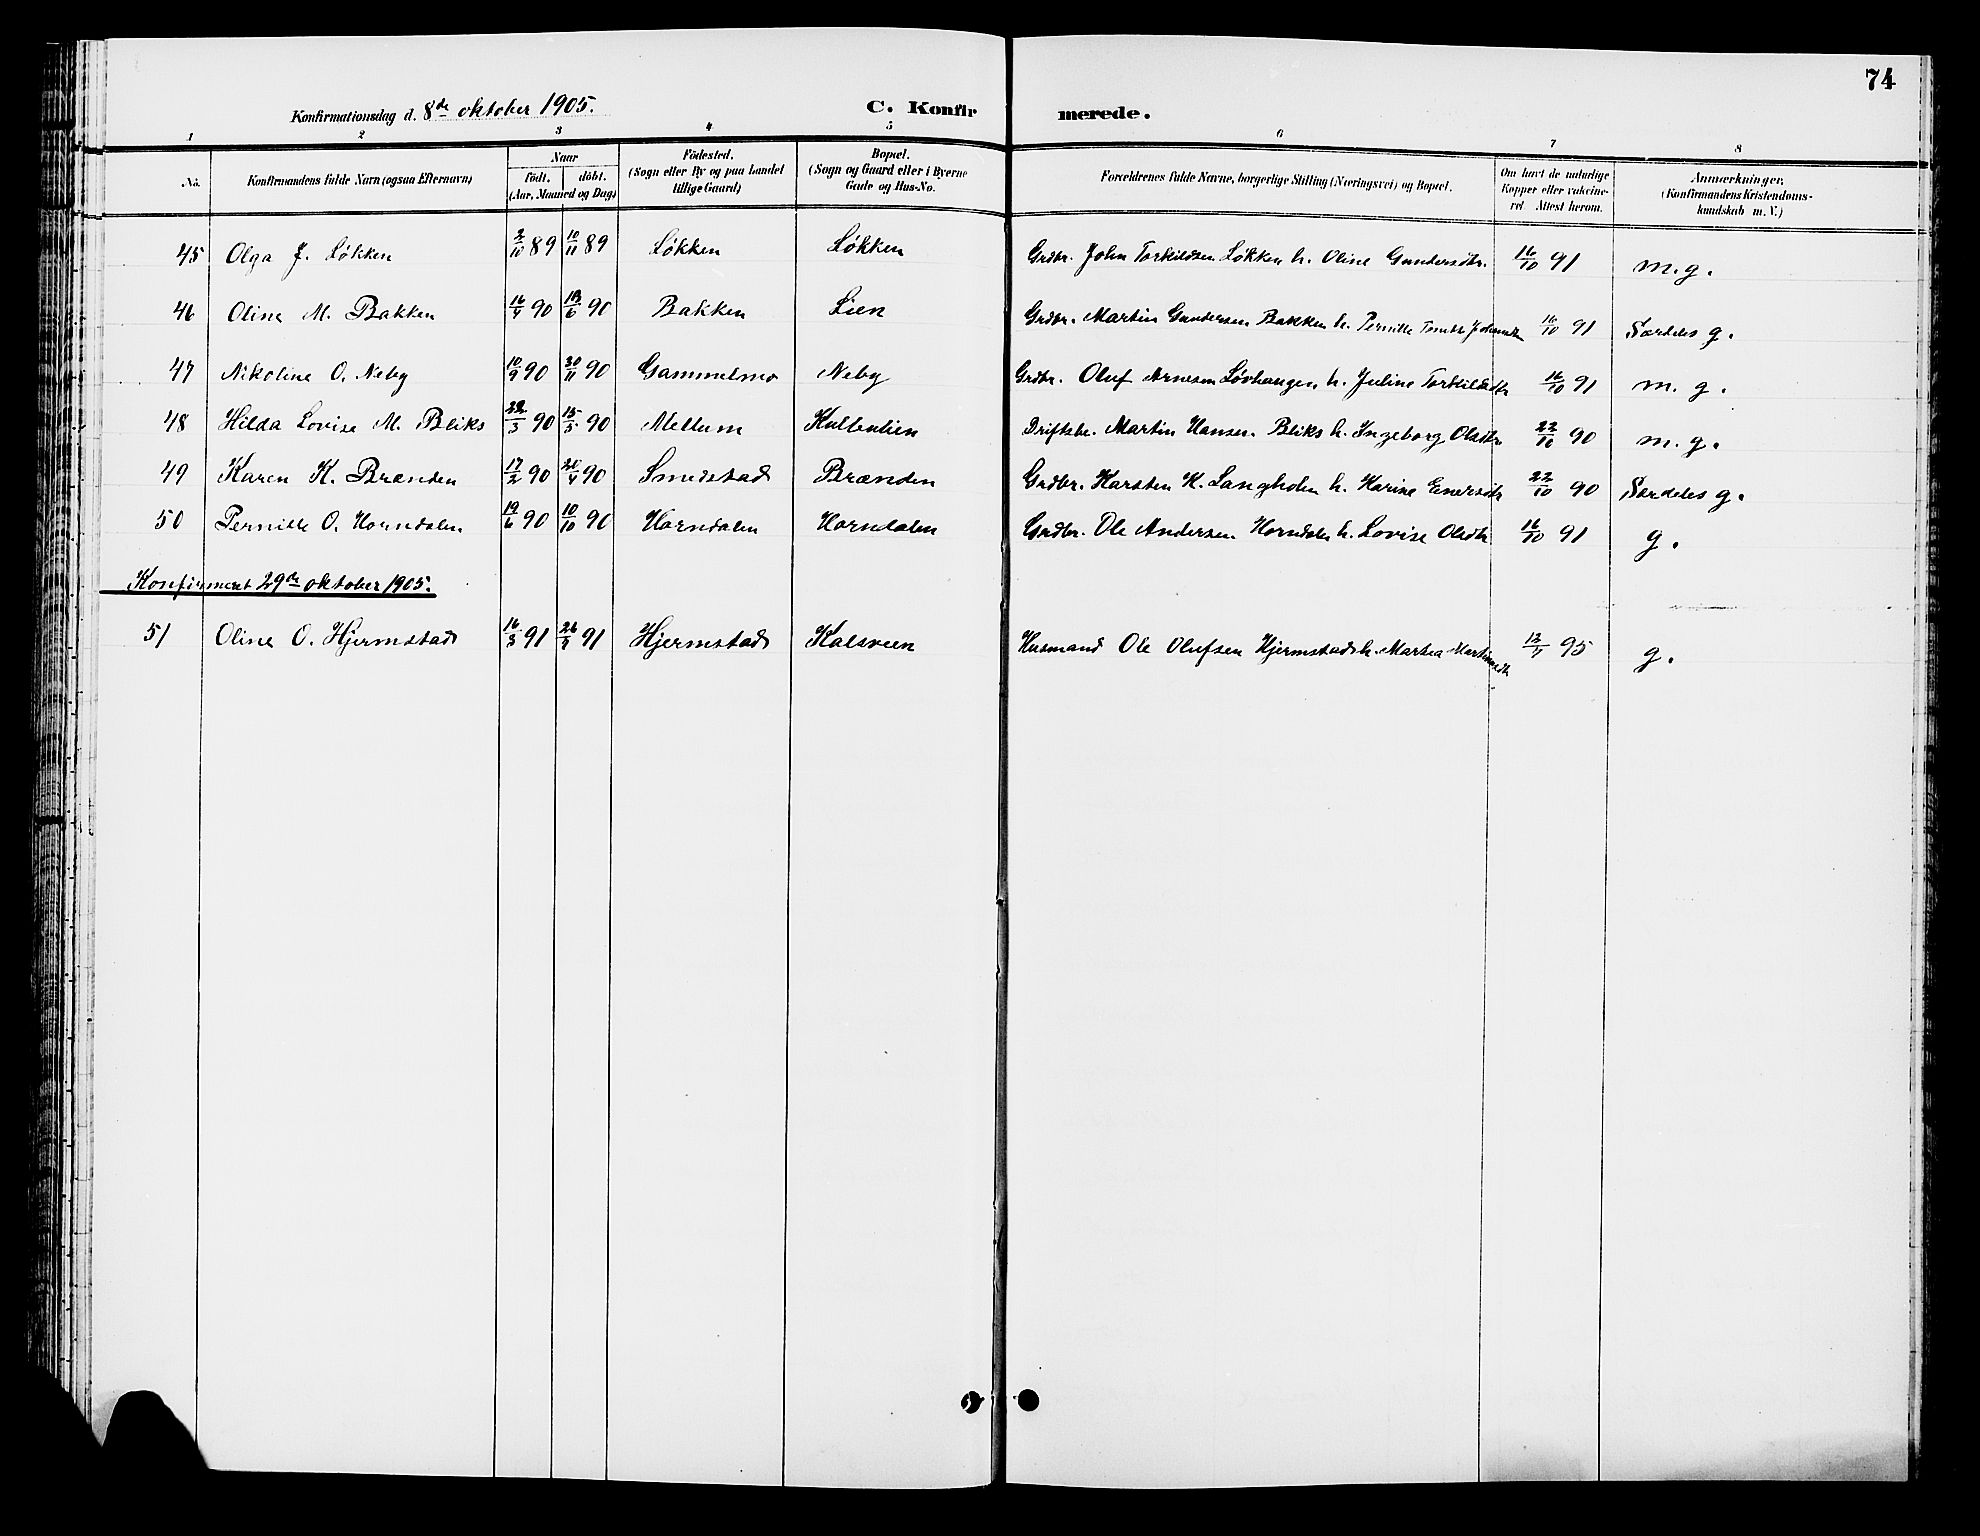 74
Konfirmationsdag d. 8de oktober 1905. C. Konfirmerede.
1 2 3 4 5 6 7 8
No. Konfirmandens fulde Navn (ogsaa Efternavn) Naar födt. döbt. (Aar, Maaned og Dag) Födested. (Sogn eller By og paa Landet tillige Gaard) Bopæl. (Sogn og Gaard eller i Byerne Gade og Hus-No. Forældrenes fulde Navne, borgerlige Stilling (Næringsvei) og Bopæl. Om havt de naturlige Kopper eller vakcineret Attest herom. Anmærkninger. (Konfirmandens Kristendomskundskab m. V.)
45 Olga J. Løkken 2/10 89 10/11 89 Løkken Løkken Grdbr. John Torkildsen Løkken h. Oline Gundersdtr. 16/10 91 m.g.
46 Oline M. Bakken 16/4 90 /6 90 Bakken Lien Grdbr. Martin Gundersen Bakken h. Pernille 16/10 91 Særdeles g.
47 Nikoline O. Neby 10/9 90 30/11 90 Gammelmo Neby Grdbr. Oluf Arnesen Løvhaugen h. Juline Torkildsdtr 16/10 91 m. g.
48 Hilda Lovise M. Bliks 22/3 90 15/5 90 Mellum Driftsbr. Martin Hansen Bliks h. Ingeborg Olsdtr 22/10 90 m. g.
49 Karen K. Brænden 17/2 90 20/4 90 Smedstad Brænden Grdbr. Karsten K. Langholen h. Karine Enersdtr 22/10 90 Særdeles g.
50 Pernille O. Horndalen 19/6 90 10/10 90 Horndalen Horndalen Grdbr. Ole Andersen Horndalen h. Lovise Olsdtr 16/10 91 g.
Konfirmeret 29de oktober 1905.
51 Oline O. Hjermstad 16/3 91 26/3 91 Hjermstad Kalsveen Husmand Ole Olufsen Hjermstad h. Martea Martinsdtr 12/7 95 g.